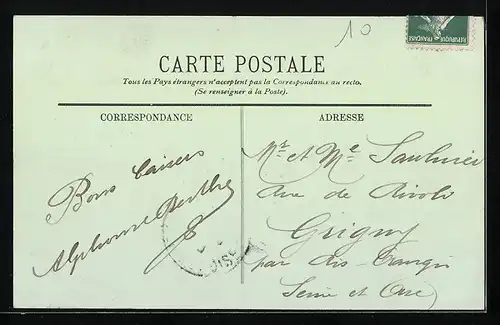 10
REPUBLIQUE FRANÇAISE
CARTE POSTALE
Tous les Pays étrangers n'acceptent pas la Correspondance au recto.
(Se renseigner à la Poste).
CORRESPONDANCE
ADRESSE
Bons baisers
Alphonse Berthe
Mr et Me Saulnier
Rue de Rivoli
Grigny
par Ris-Orangis
Seine et Oise